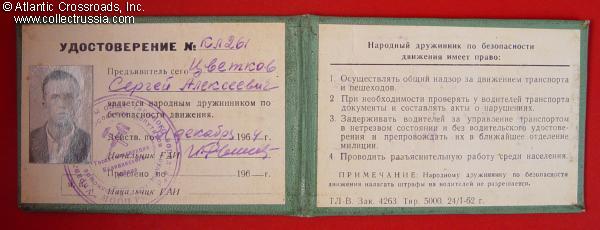 © Atlantic Crossroads, Inc.
www.collectrussia.com
УДОСТОВЕРЕНИЕ №
Предъявитель сего Цветков
Сергей Алексеевич
является народным дружинником по
безопасности движения.
Действ. по декабрь 1964 г.
Начальник ГАИ
Продлено по 196 — г.
Начальник ГАИ
Народный дружинник по безопасности
движения имеет право:
1. Осуществлять общий надзор за движением транспорта
и пешеходов.
2 При необходимости проверять у водителей транспорта
документы и составлять акты о нарушениях.
3. Задерживать водителей за управление транспортом
в нетрезвом состоянии и без водительского удостове-
рения и препровождать их в ближайшее отделение
милиции.
4 Проводить разъяснительную работу среди населения.
ПРИМЕЧАНИЕ: Народному дружиннику по безопасности
движения налагать штрафы на водителей не разрешается.
ГЛ-В. Зак. 4263. Тир. 5000. 24/I-62 г.